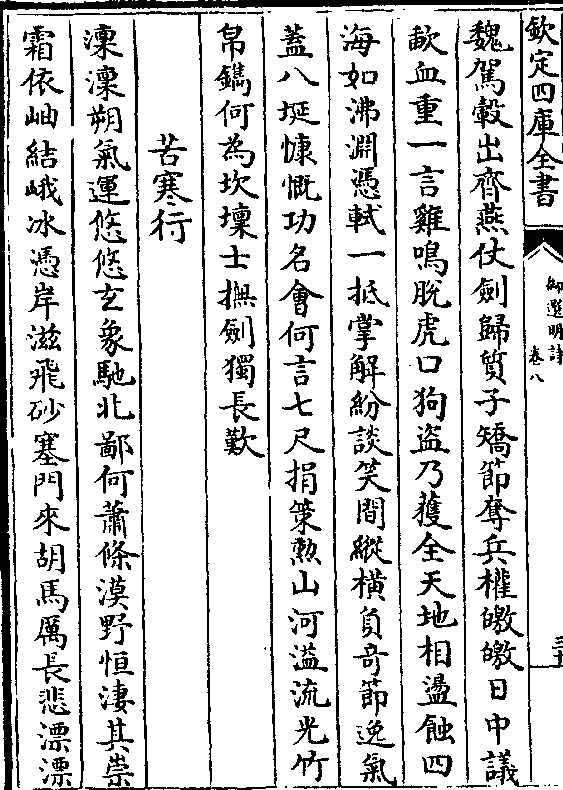 欽定四庫全書
御選明詩 卷八
魏駕轂出齊燕仗劍歸質子矯節奪兵權皦皦日中議
歃血重一言雞鳴脫虎口狗盜乃獲全天地相盪蝕四
海如沸淵憑軾一抵掌解紛談笑間縱橫負奇節逸氣
蓋八埏慷慨功名會何言七尺捐策勲山河溢流光竹
帛鐫何為坎壈士撫劍獨長歎
苦寒行
凜凜朔氣運悠悠玄象馳北鄙何蕭條漠野恒淒其崇
霜依岫結峨冰憑岸滋飛砂塞門來胡馬厲長悲漂漂